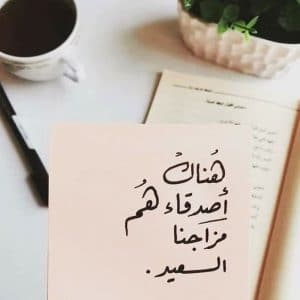 هُناكَ
أصدقاء هُم
مَزَاجنا
السعيد.